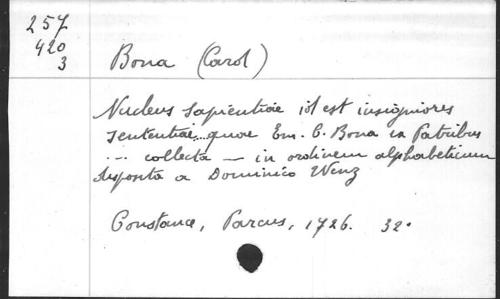 257
420
3
Bona (Carol)
Nucleus sapientiae id est insigniores
sententiae... quae Em. C. Bona ex Patribus
... collecta — in ordinem alphabeticum
disposita a Dominico Wenz
Constance, Parcus, 1726. 32°